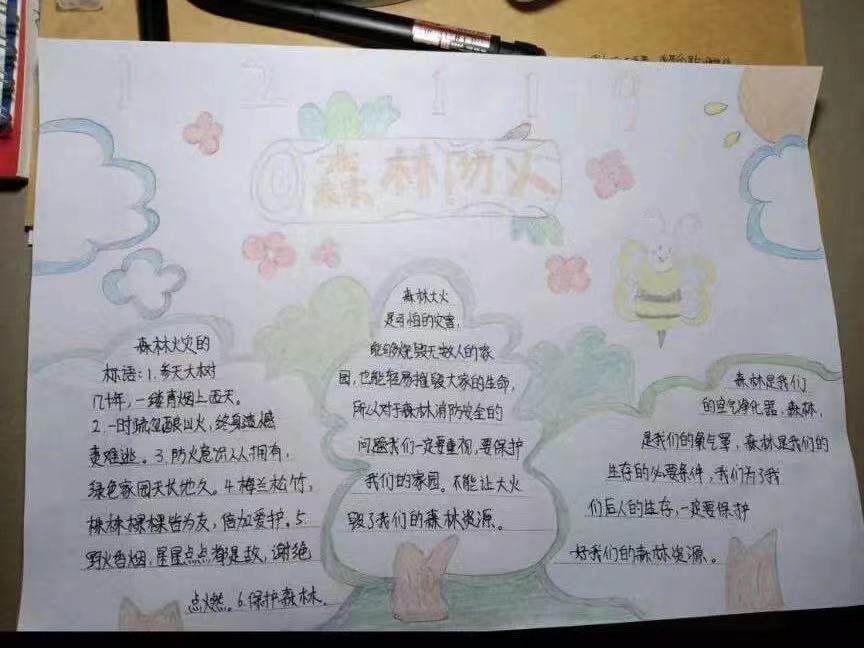 12119
森林防火
森林火灾的
标语:1.参天大树
几十年,一缕青烟上西天。
2.一时疏忽酿山火,终身遗憾
责难逃。3.防火意识人人拥有,
绿色家园天长地久。4.梅兰松竹,
株株棵棵皆为友,倍加爱护。5.
野火香烟,星星点点都是敌,谢绝
点燃。6.保护森林.
森林大火
是可怕的灾害,
能够烧毁无数人的家
园,也能轻易摧毁大家的生命,
所以对于森林消防安全的
问题我们一定要重视,要保护
我们的家园。不能让大火
毁了我们的森林资源。
森林是我们
的空气净化器,森林,
是我们的氧气罩,森林是我们的
生存的必要条件,我们为了我
们后人的生存,一定要保护
好我们的森林资源。